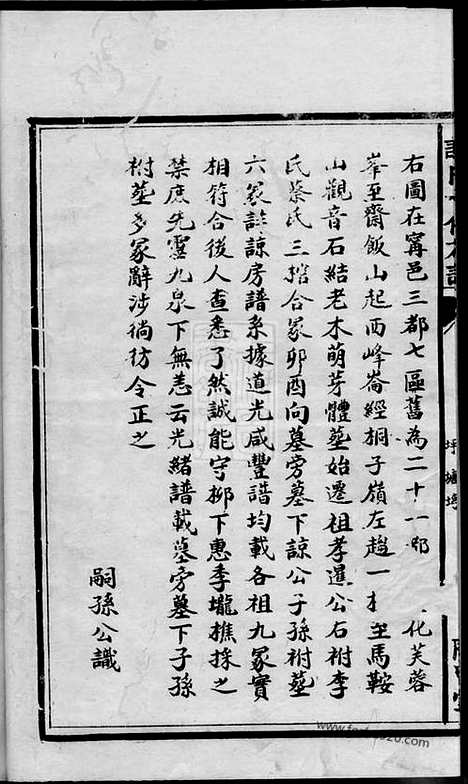 右圖在甯邑三都七區舊為二十一都 化芙蓉
峯至齋飯山起西峰崙經桐子嶺左趨一 至馬鞍
山觀音石結老木萌芽體塟始遷祖孝暹公右祔李
氏蔡氏三棺合冢卯酉向墓旁墓下諒公子孫祔塟
六冢註諒房譜系據道光咸豐譜均載各祖九冢實
相符合後人查悉了然誠能守柳下惠季壠樵採之
禁庶先靈九泉下無恙云光緒譜載墓旁墓下子孫
祔塟多冢辭涉徜彷令正之
嗣孫公識